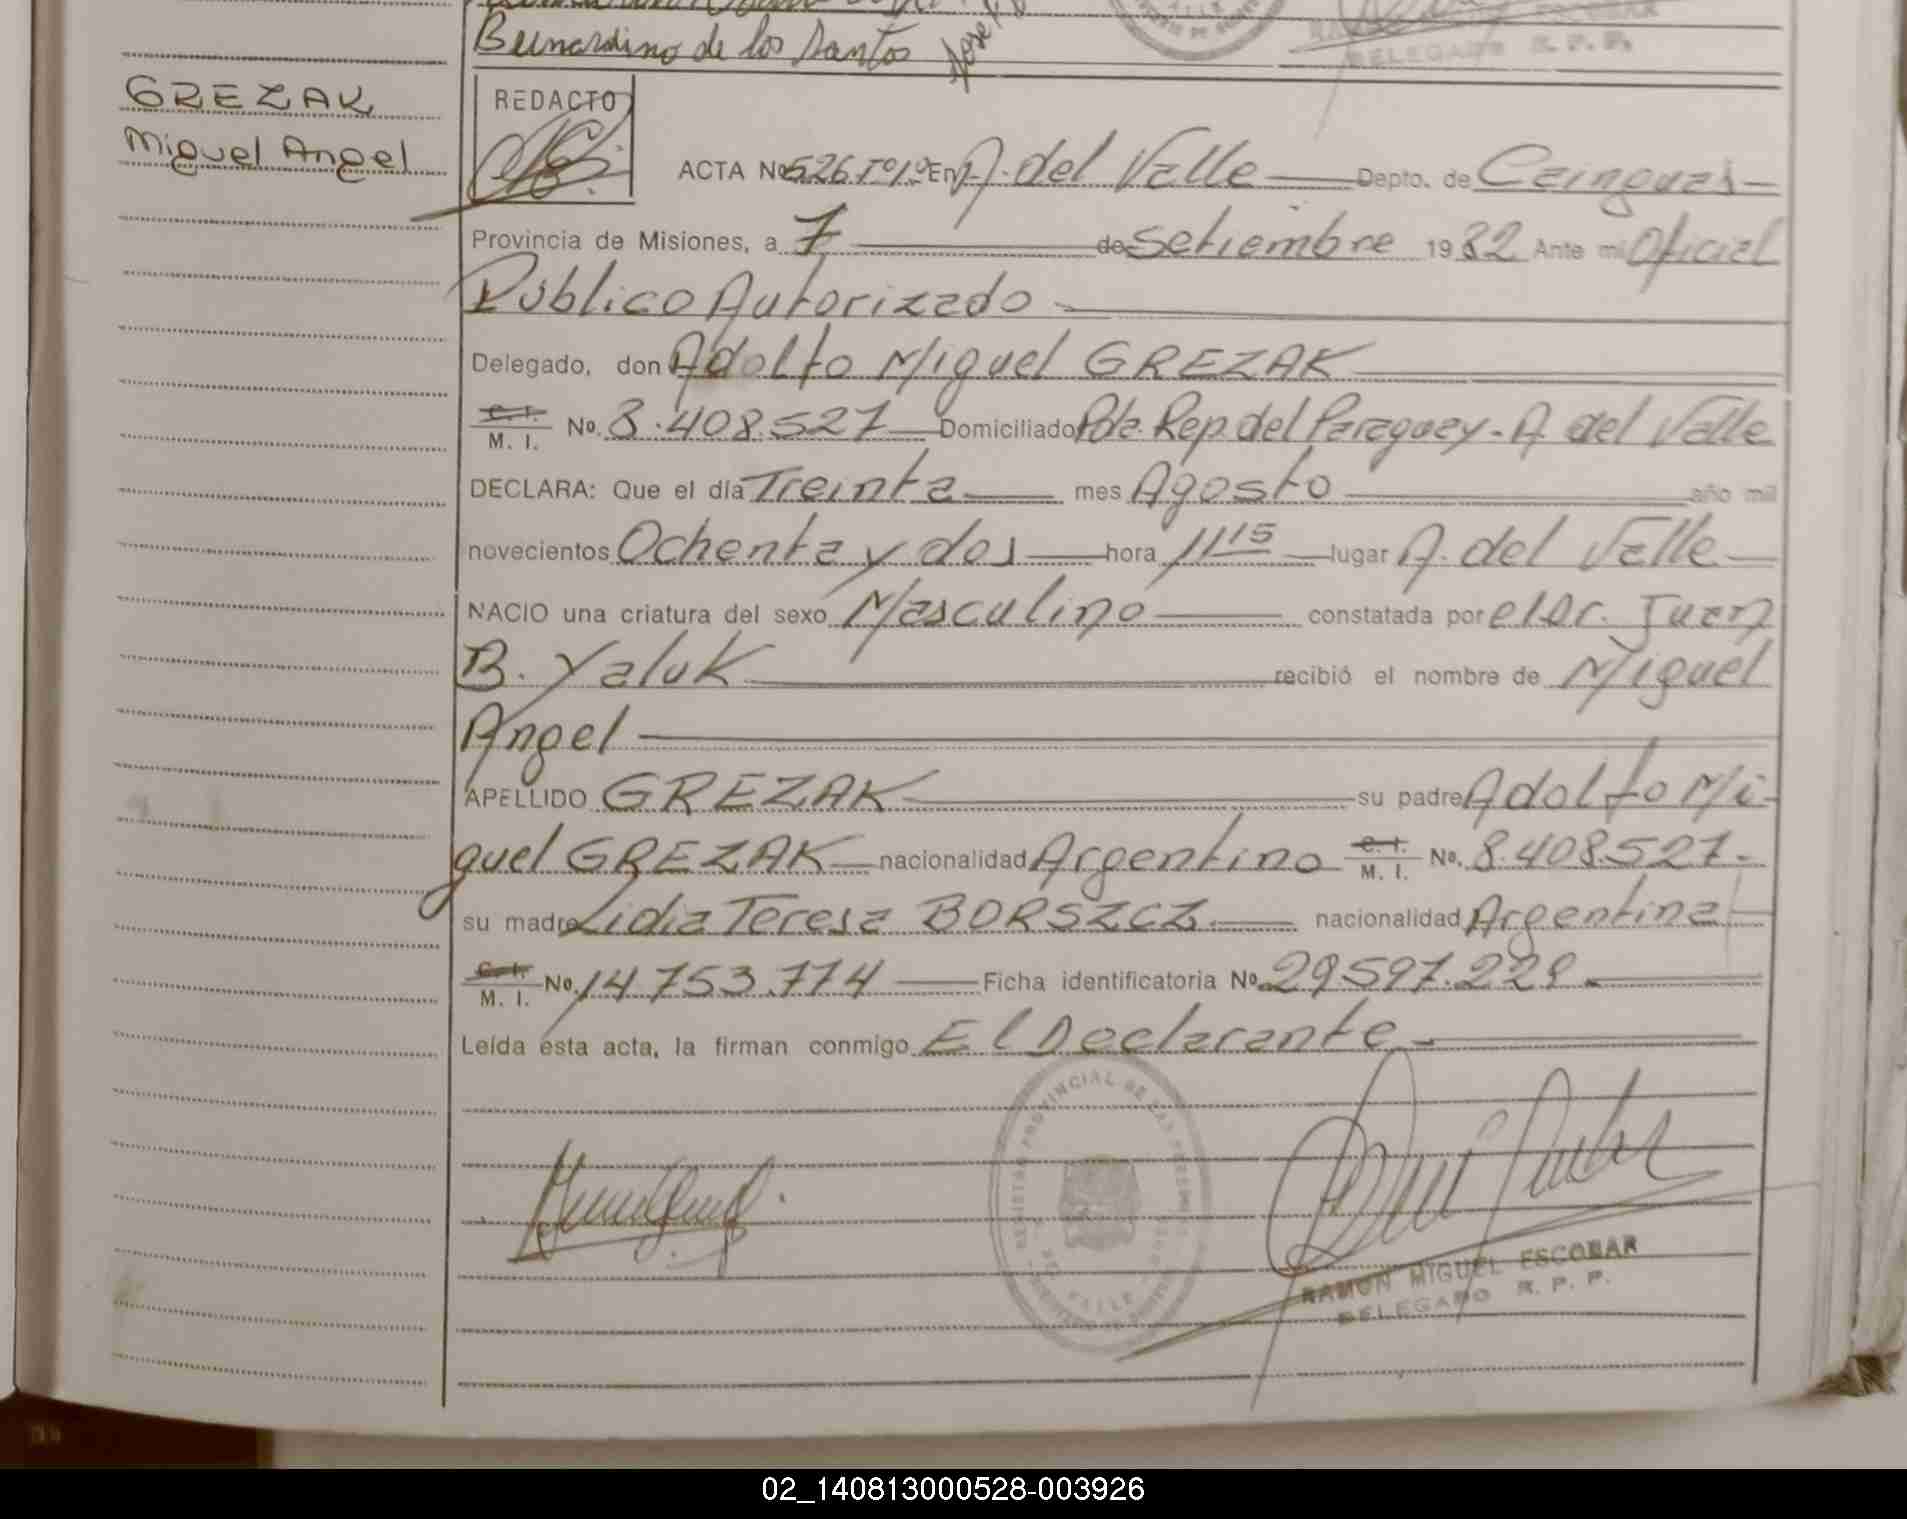 Bernardino de los Santos
RAMON MIGUEL ESCOBAR
DELEGADO R. P. P.
GREZAK
Miguel Angel
REDACTO
ACTA No 526 Tº1º En A. del Valle Depto. de Cainguas
Provincia de Misiones, a 7 de Setiembre 1982 Ante mi Oficial
Público Autorizado
Delegado, don Adolfo Miguel GREZAK
C. I.
M. I. No. 8.408.527 Domiciliado Pda. Rep. del Paraguay - A. del Valle
DECLARA: Que el día Treinta mes Agosto año mil
novecientos Ochenta y dos hora 11 15 lugar A. del Valle
NACIO una criatura del sexo Masculino constatada por el Dr. Juan
B. Yaluk recibió el nombre de Miguel
Angel
APELLIDO GREZAK su padre Adolfo Mi-
guel GREZAK nacionalidad Argentino C. I. M. I. No. 8.408.527.-
su madre Lidia Teresa BORSZCZ. nacionalidad Argentina
C. I.
M. I. No. 14.753.774 Ficha identificatoria No 29.597.229.
Leída esta acta, la firman conmigo El Declarante.
REGISTRO PROVINCIAL DE LAS PERSONAS
VALLE
RAMON MIGUEL ESCOBAR
DELEGADO R. P. P.
02_140813000528-003926